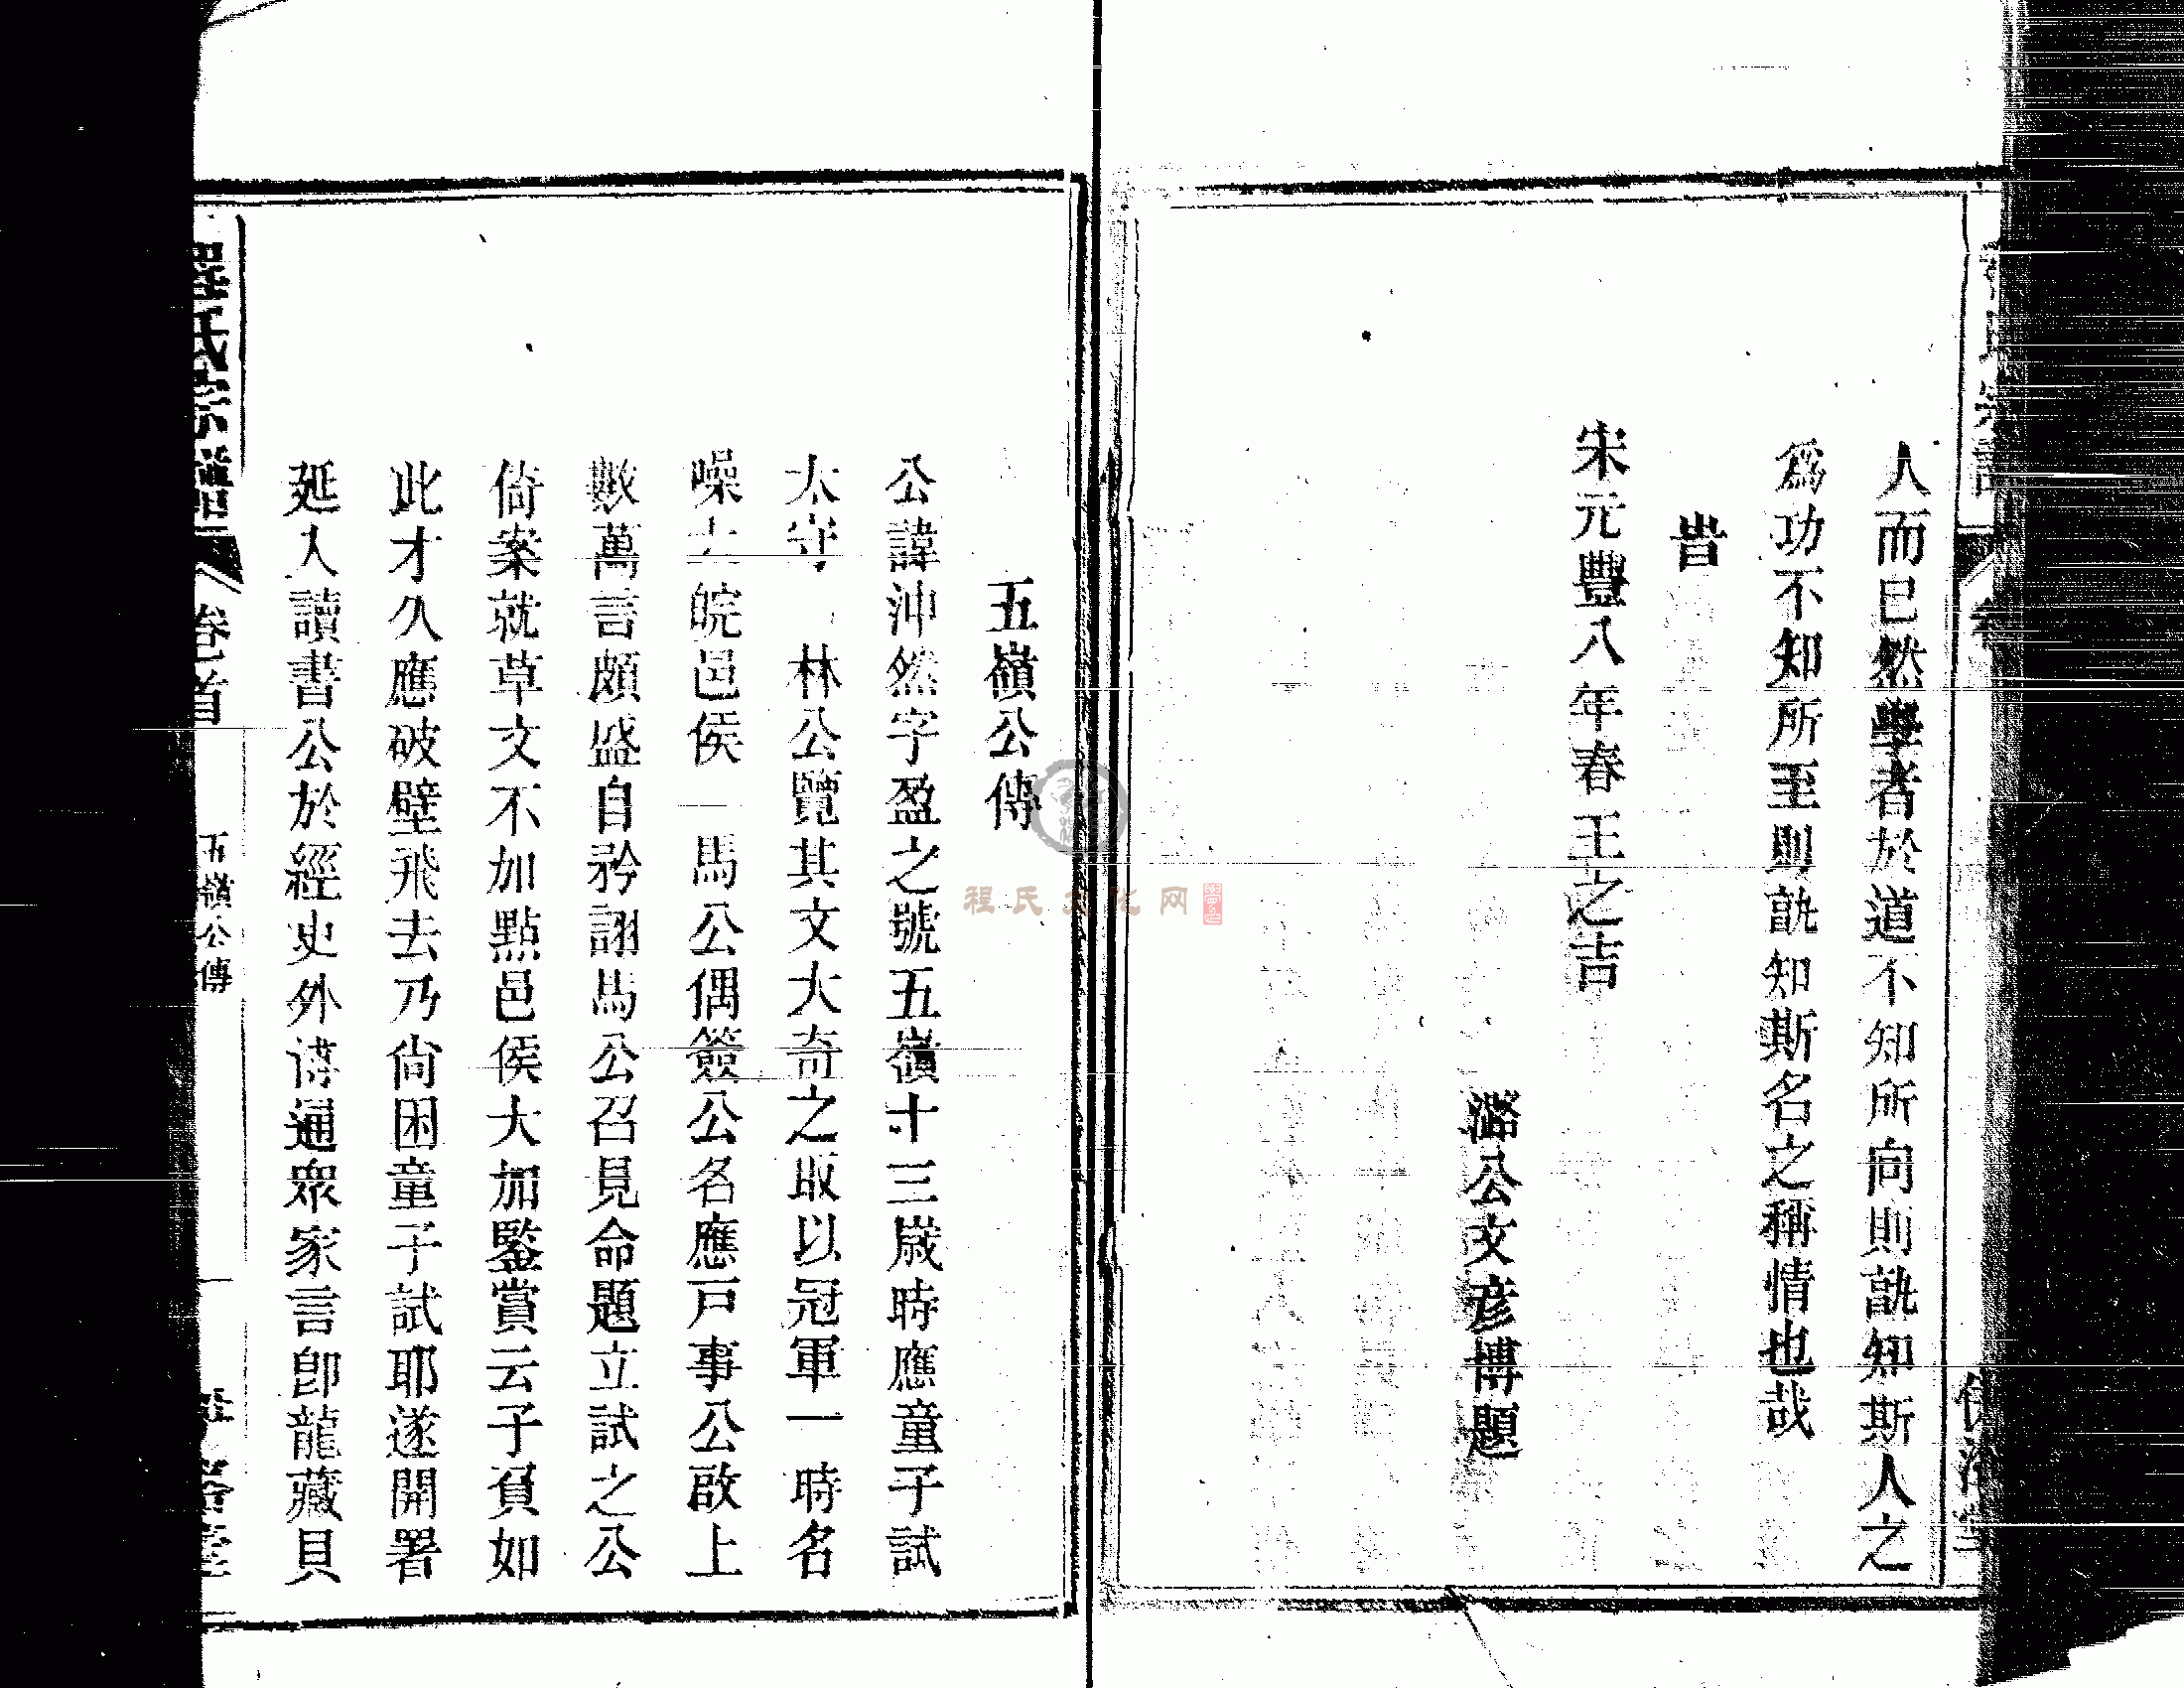 人而已然學者於道不知所向則孰知斯人之
為功不知所至則孰知斯名之稱情也哉
旹
宋元豐八年春王之吉
潞公文彥博題
五嶺公傳
公諱沖然字盈之號五嶺十三歲時應童子試
太守 林公覽其文大奇之取以冠軍一時名
噪 皖邑侯 馬公偶簽公名應戶事公啟上
數萬言頗盛自矜詡馬公召見命題立試之公
倚案就草文不加點邑侯大加鑒賞云子負如
此才久應破壁飛去乃尙困童子試耶遂開署
延人讀書公於經史外博通眾家言卽龍藏貝
程氏宗譜
卷首
五嶺公傳
一
程氏文化网